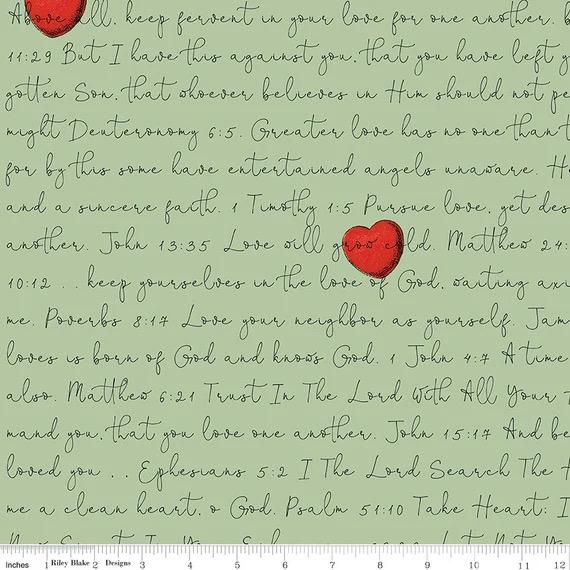 Above all, keep fervent in your love for one another. b
11:29 But I have this against you, that you have left y
gotten Son, that whoever believes in Him should not pe
might Deuteronomy 6:5. Greater love has no one than t
for by this some have entertained angels unaware. H
and a sincere faith. 1 Timothy 1:5 Pursue love, yet des
another. John 13:35 Love will grow cold. Matthew 24:
10:12 .. keep yourselves in the love of God, waiting axi
me. Poverbs 8:17 Love your neighbor as yourself. Jam
loves is born of God and knows God. 1 John 4:7 A time
also. Matthew 6:21 Trust In The Lord With All Your
mand you, that you love one another. John 15:17 And be
loved you .. Ephesians 5:2 I The Lord Search The
me a clean heart, o God. Psalm 51:10 Take Heart; I
inches 1 Riley Blake 2 Designs 3 4 5 6 7 8 9 10 11 12